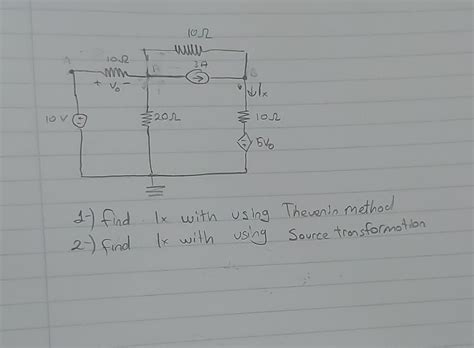 10Ω
A
10Ω
B
3A
B
+ Vo -
↓Ix
10 V
20Ω
10Ω
5Vo
1-) find Ix with using Thevenin method
2-) find Ix with using Source transformation